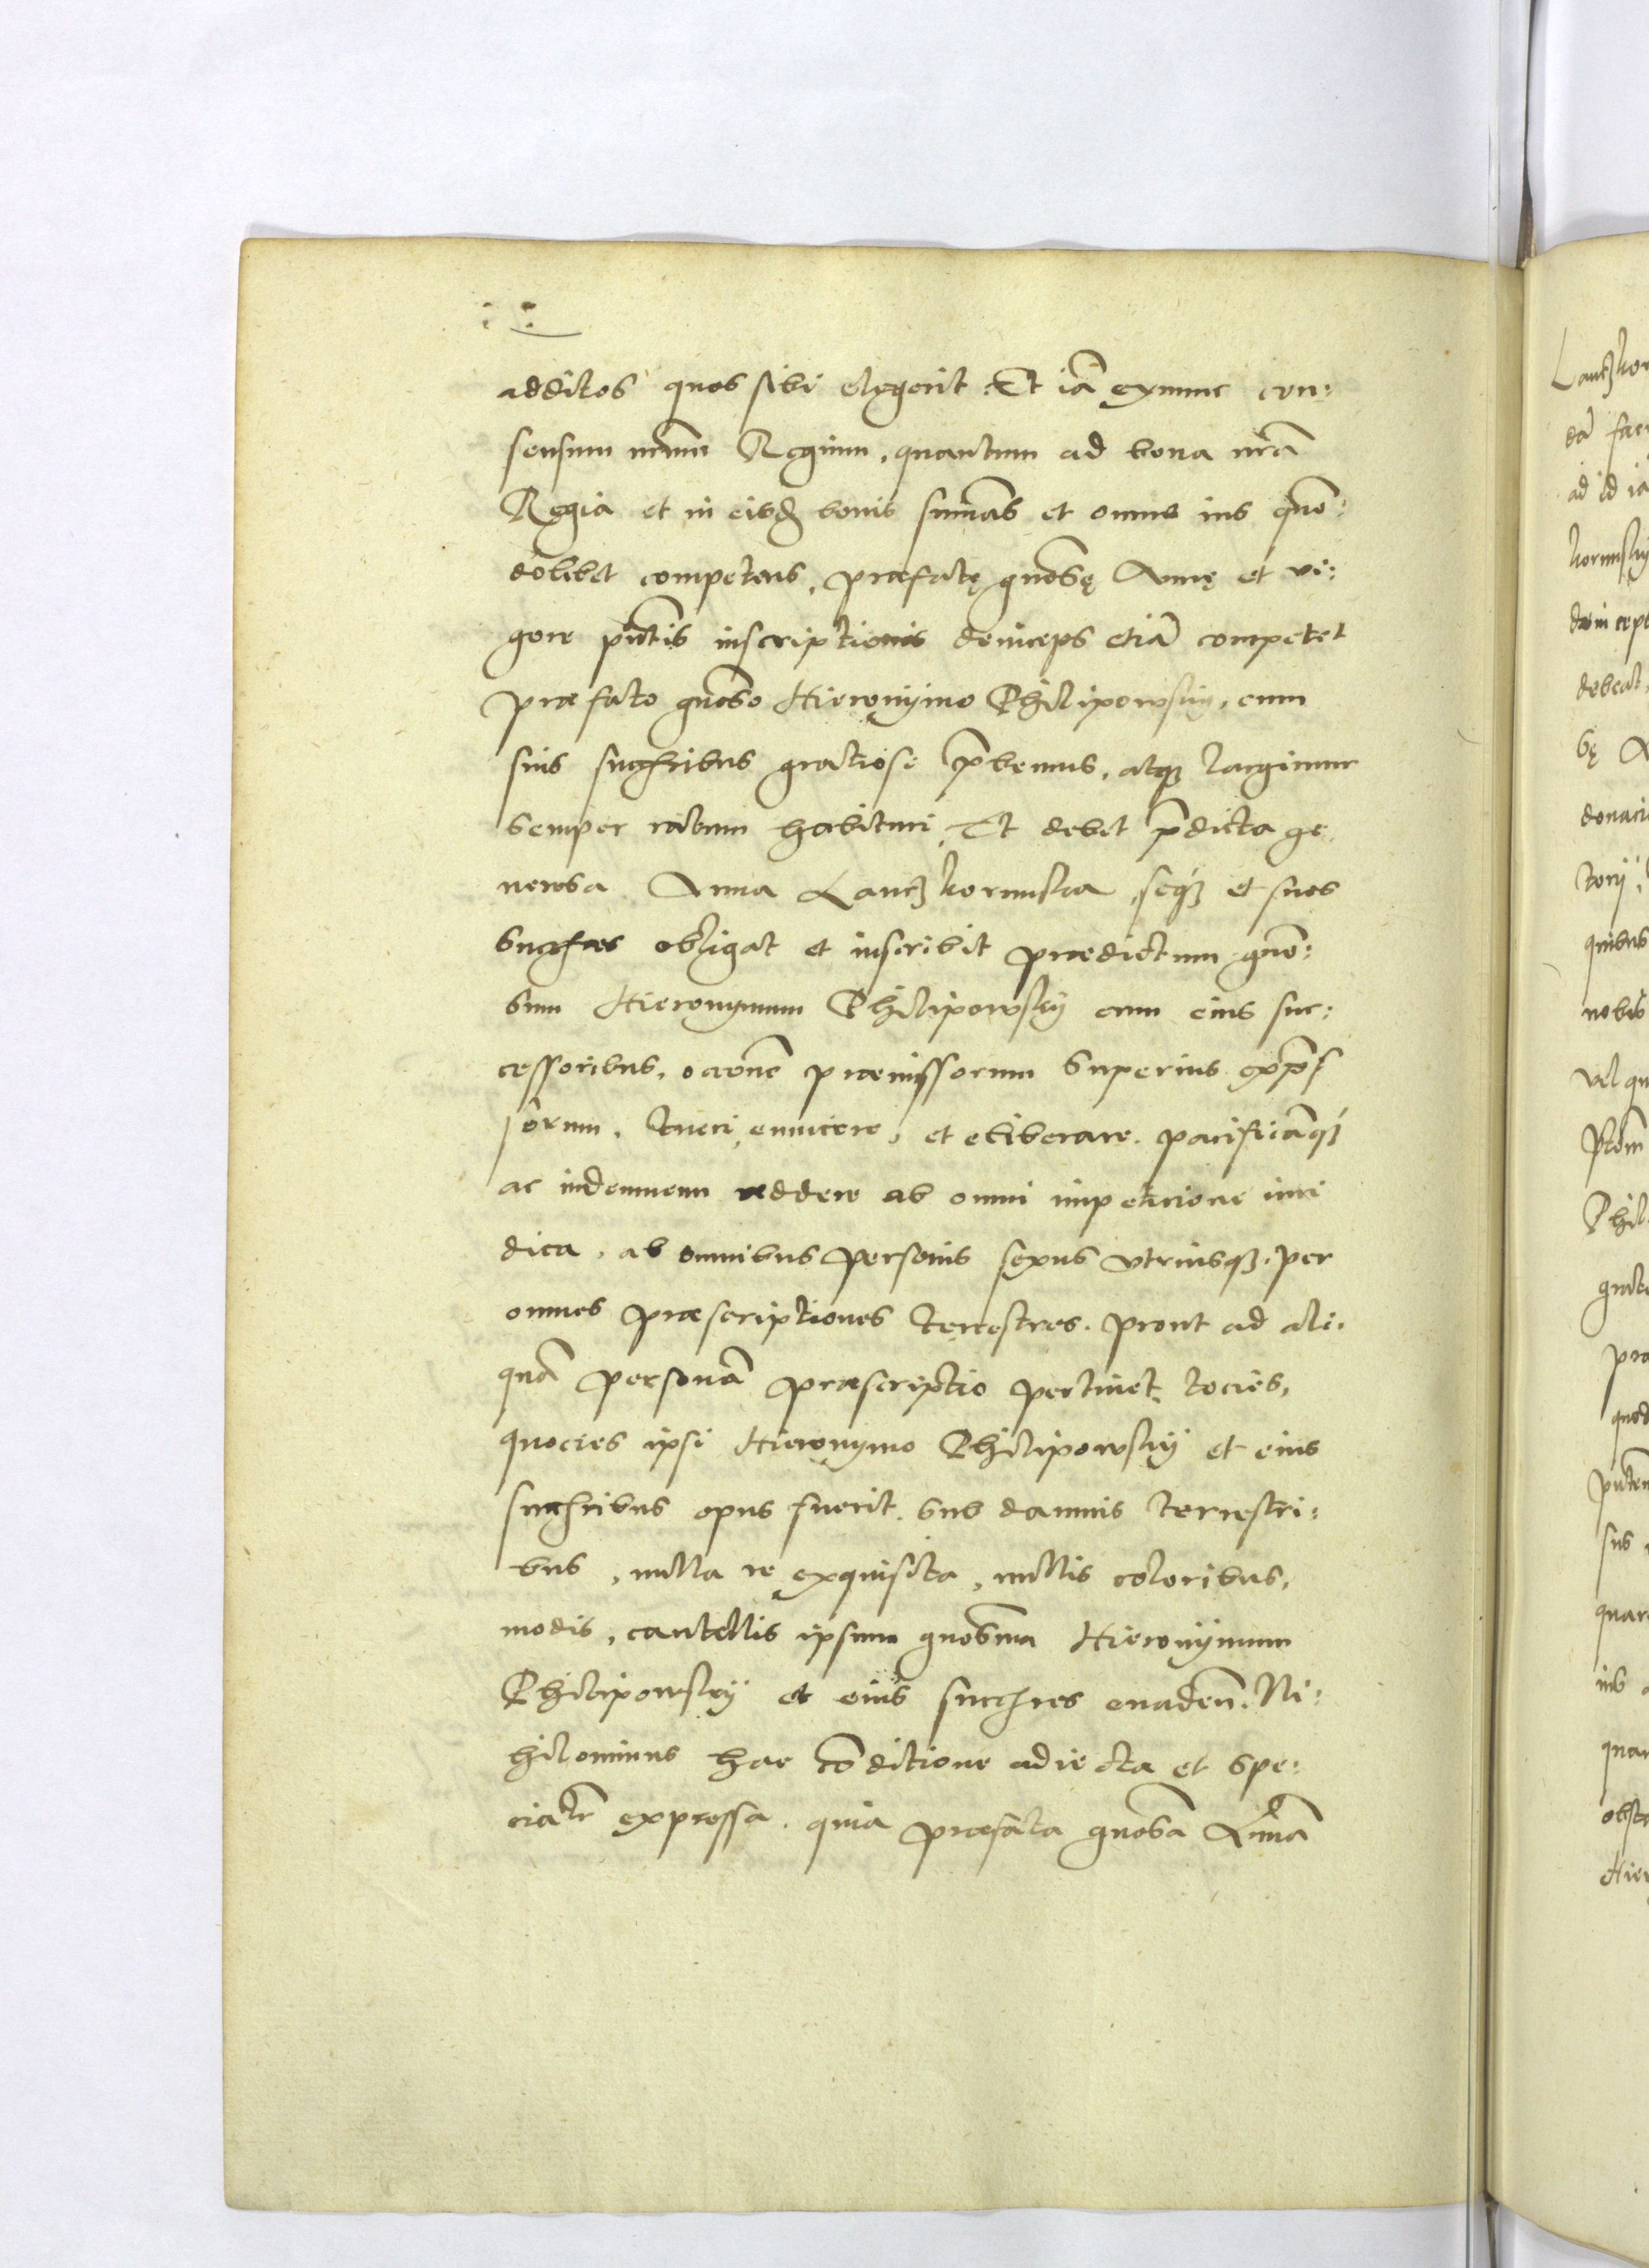 additos quos sibi elegerit. Et iã exnunc con:
sensum nrũm Regium, quantum ad bona nrã
Regia et in eisd bonis sumãs et omne ius quo:
dolibet competens, præfatę gnosę Annę et vi:
gore pñtis inscriptionis deinceps etiã competet
præfato gnoso Hieronymo Philipowsky, cum
suis succribus gratiose p̃bemus, atqȝ largimur
semper ratum habituri, Et debet p̃dicta ge
nerosa Anna Lanczkorunska seqȝ et suos
succres obligat et inscribit prædictum gno:
sum Hieronymum Philipowsky cum eius suc:
cessoribus, ocione præmissorum superius exp̃s
sorum, tueri euincere, et eliberare. pacificũqȝ
ac indemnem reddere ab omni impeticione iuri
dica, ab omnibus personis sexus vtriusqȝ, per
omnes præscriptiones terrestres. prout ad ali:
quã personã præscriptio pertinet, tocies,
quocies ipsi Hieronymo Philipowsky et eius
succribus opus fuerit. sub damnis terrestri:
bus, nulla re exquisita, nullis coloribus,
modis, cautellis ipsum gnosum Hieronymum
Philipowsky et eius succres euadeñ. Ni:
hilominus hac cõditione adiecta et spe:
cialr̃ expressa. quia præfata gnosa Anna